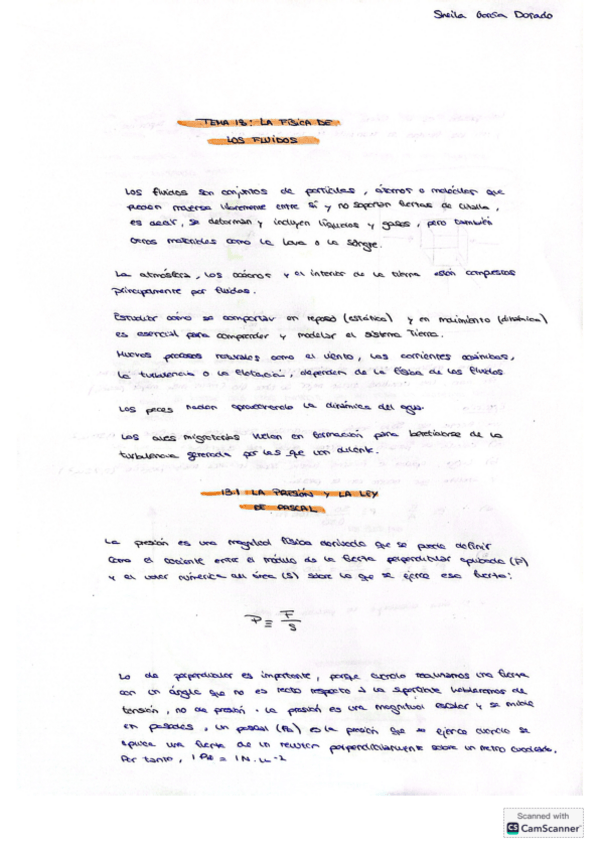 Sheila García Dorado
TEMA 13: LA FÍSICA DE
LOS FLUIDOS
Los fluidos son conjuntos de partículas, átomos o moléculas que
pueden moverse libremente entre sí y no soportan fuerzas de cizalla,
es decir, se deforman y incluyen líquidos y gases, pero también
otros materiales como la lava o la sangre.
La atmósfera, los océanos y el interior de la tierra están compuestos
principalmente por fluidos.
Estudiar cómo se comportan en reposo (estática) y en movimiento (dinámica)
es esencial para comprender y modelar el sistema Tierra.
Muchos procesos naturales como el viento, las corrientes oceánicas,
la turbulencia o la flotación, dependen de la física de los fluidos
Los peces nadan aprovechando la dinámica del agua.
Las aves migratorias vuelan en formación para beneficiarse de la
turbulencia generada por las que van delante.
13.1 LA PRESIÓN Y LA LEY
DE PASCAL
La presión es una magnitud física derivada que se puede definir
como el cociente entre el módulo de la fuerza perpendicular aplicada (F)
y el valor numérico del área (S) sobre la que se ejerce esa fuerza:
P ≡ F/S
Lo de perpendicular es importante, porque cuando realizamos una fuerza
con un ángulo que no es recto respecto a la superficie hablaremos de
tensión, no de presión. La presión es una magnitud escalar y se mide
en pascales, un pascal (Pa) es la presión que se ejerce cuando se
aplica una fuerza de un newton perpendicularmente sobre un metro cuadrado.
Por tanto, 1 Pa = 1 N·m-2
Scanned with
CS CamScanner